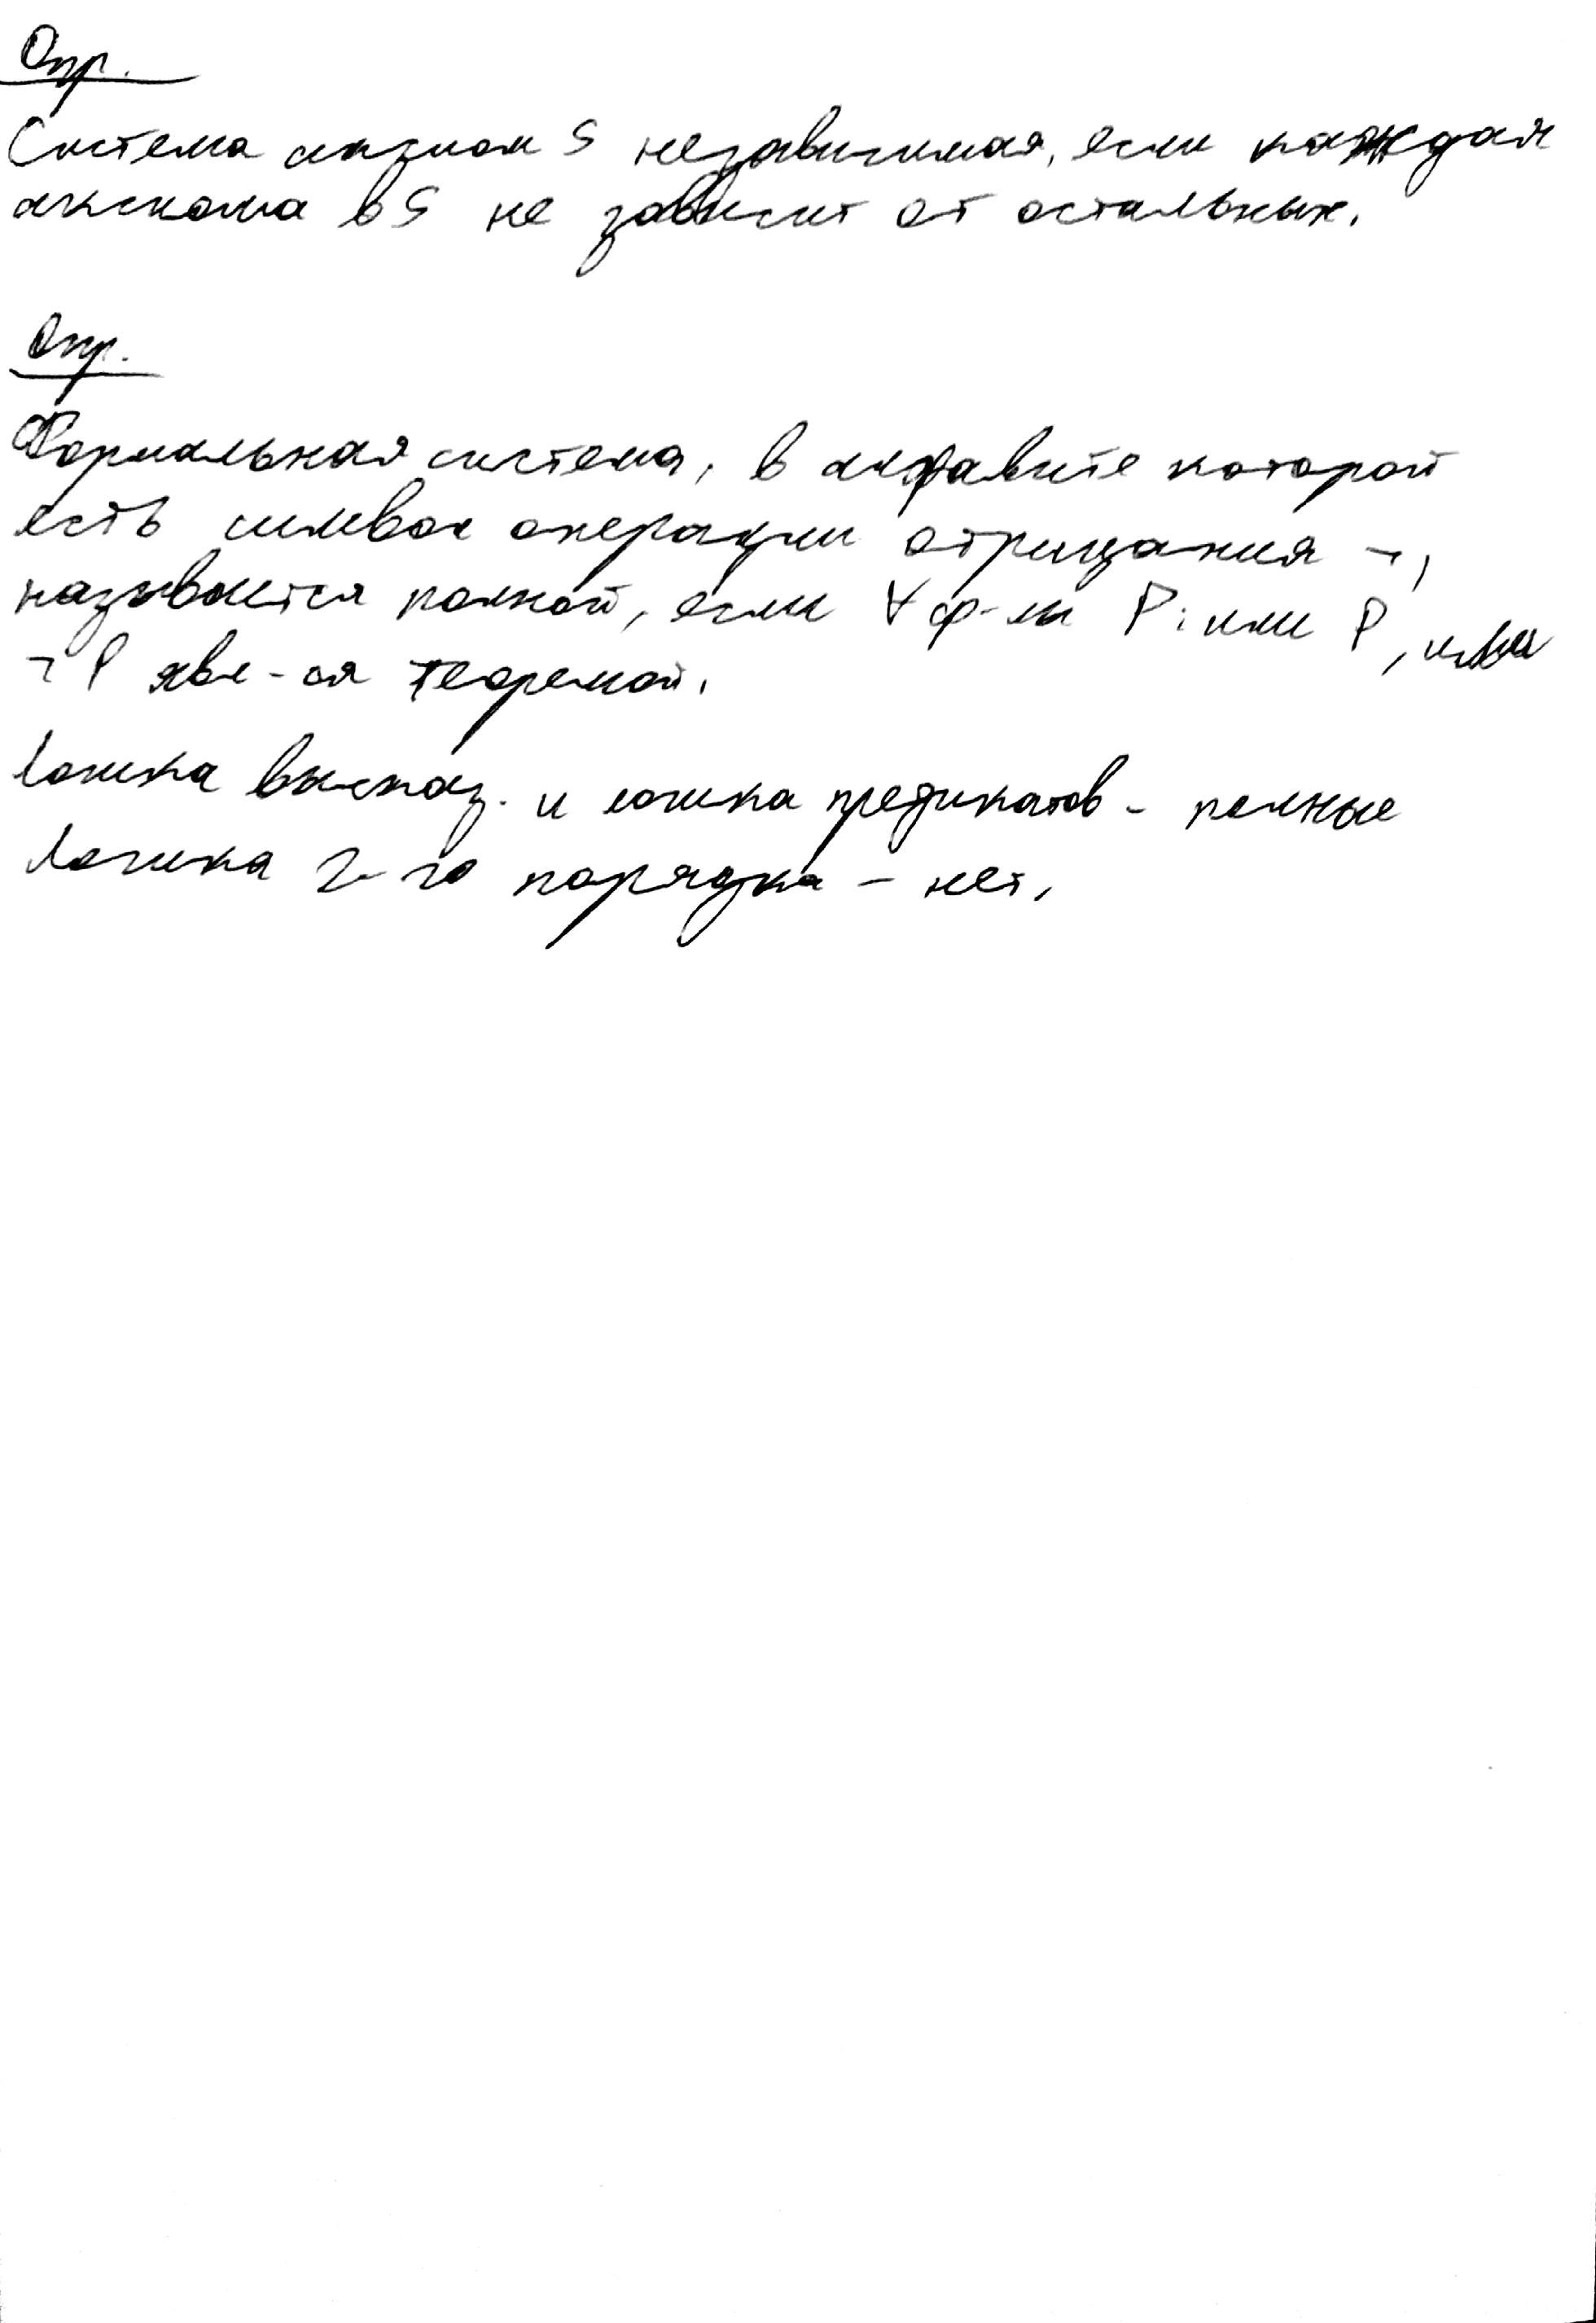 Опр.
Система аксиом S независимая, если каждая
аксиома в S не зависит от остальных.
Опр.
Формальная система, в алфавите которой
есть символ операции отрицания ¬,
называется полной, если ∀ ф-лы P: или P, или
¬P явл-ся теоремой.
Логика высказ. и логика предикатов - полные
Логика 2-го порядка - нет.